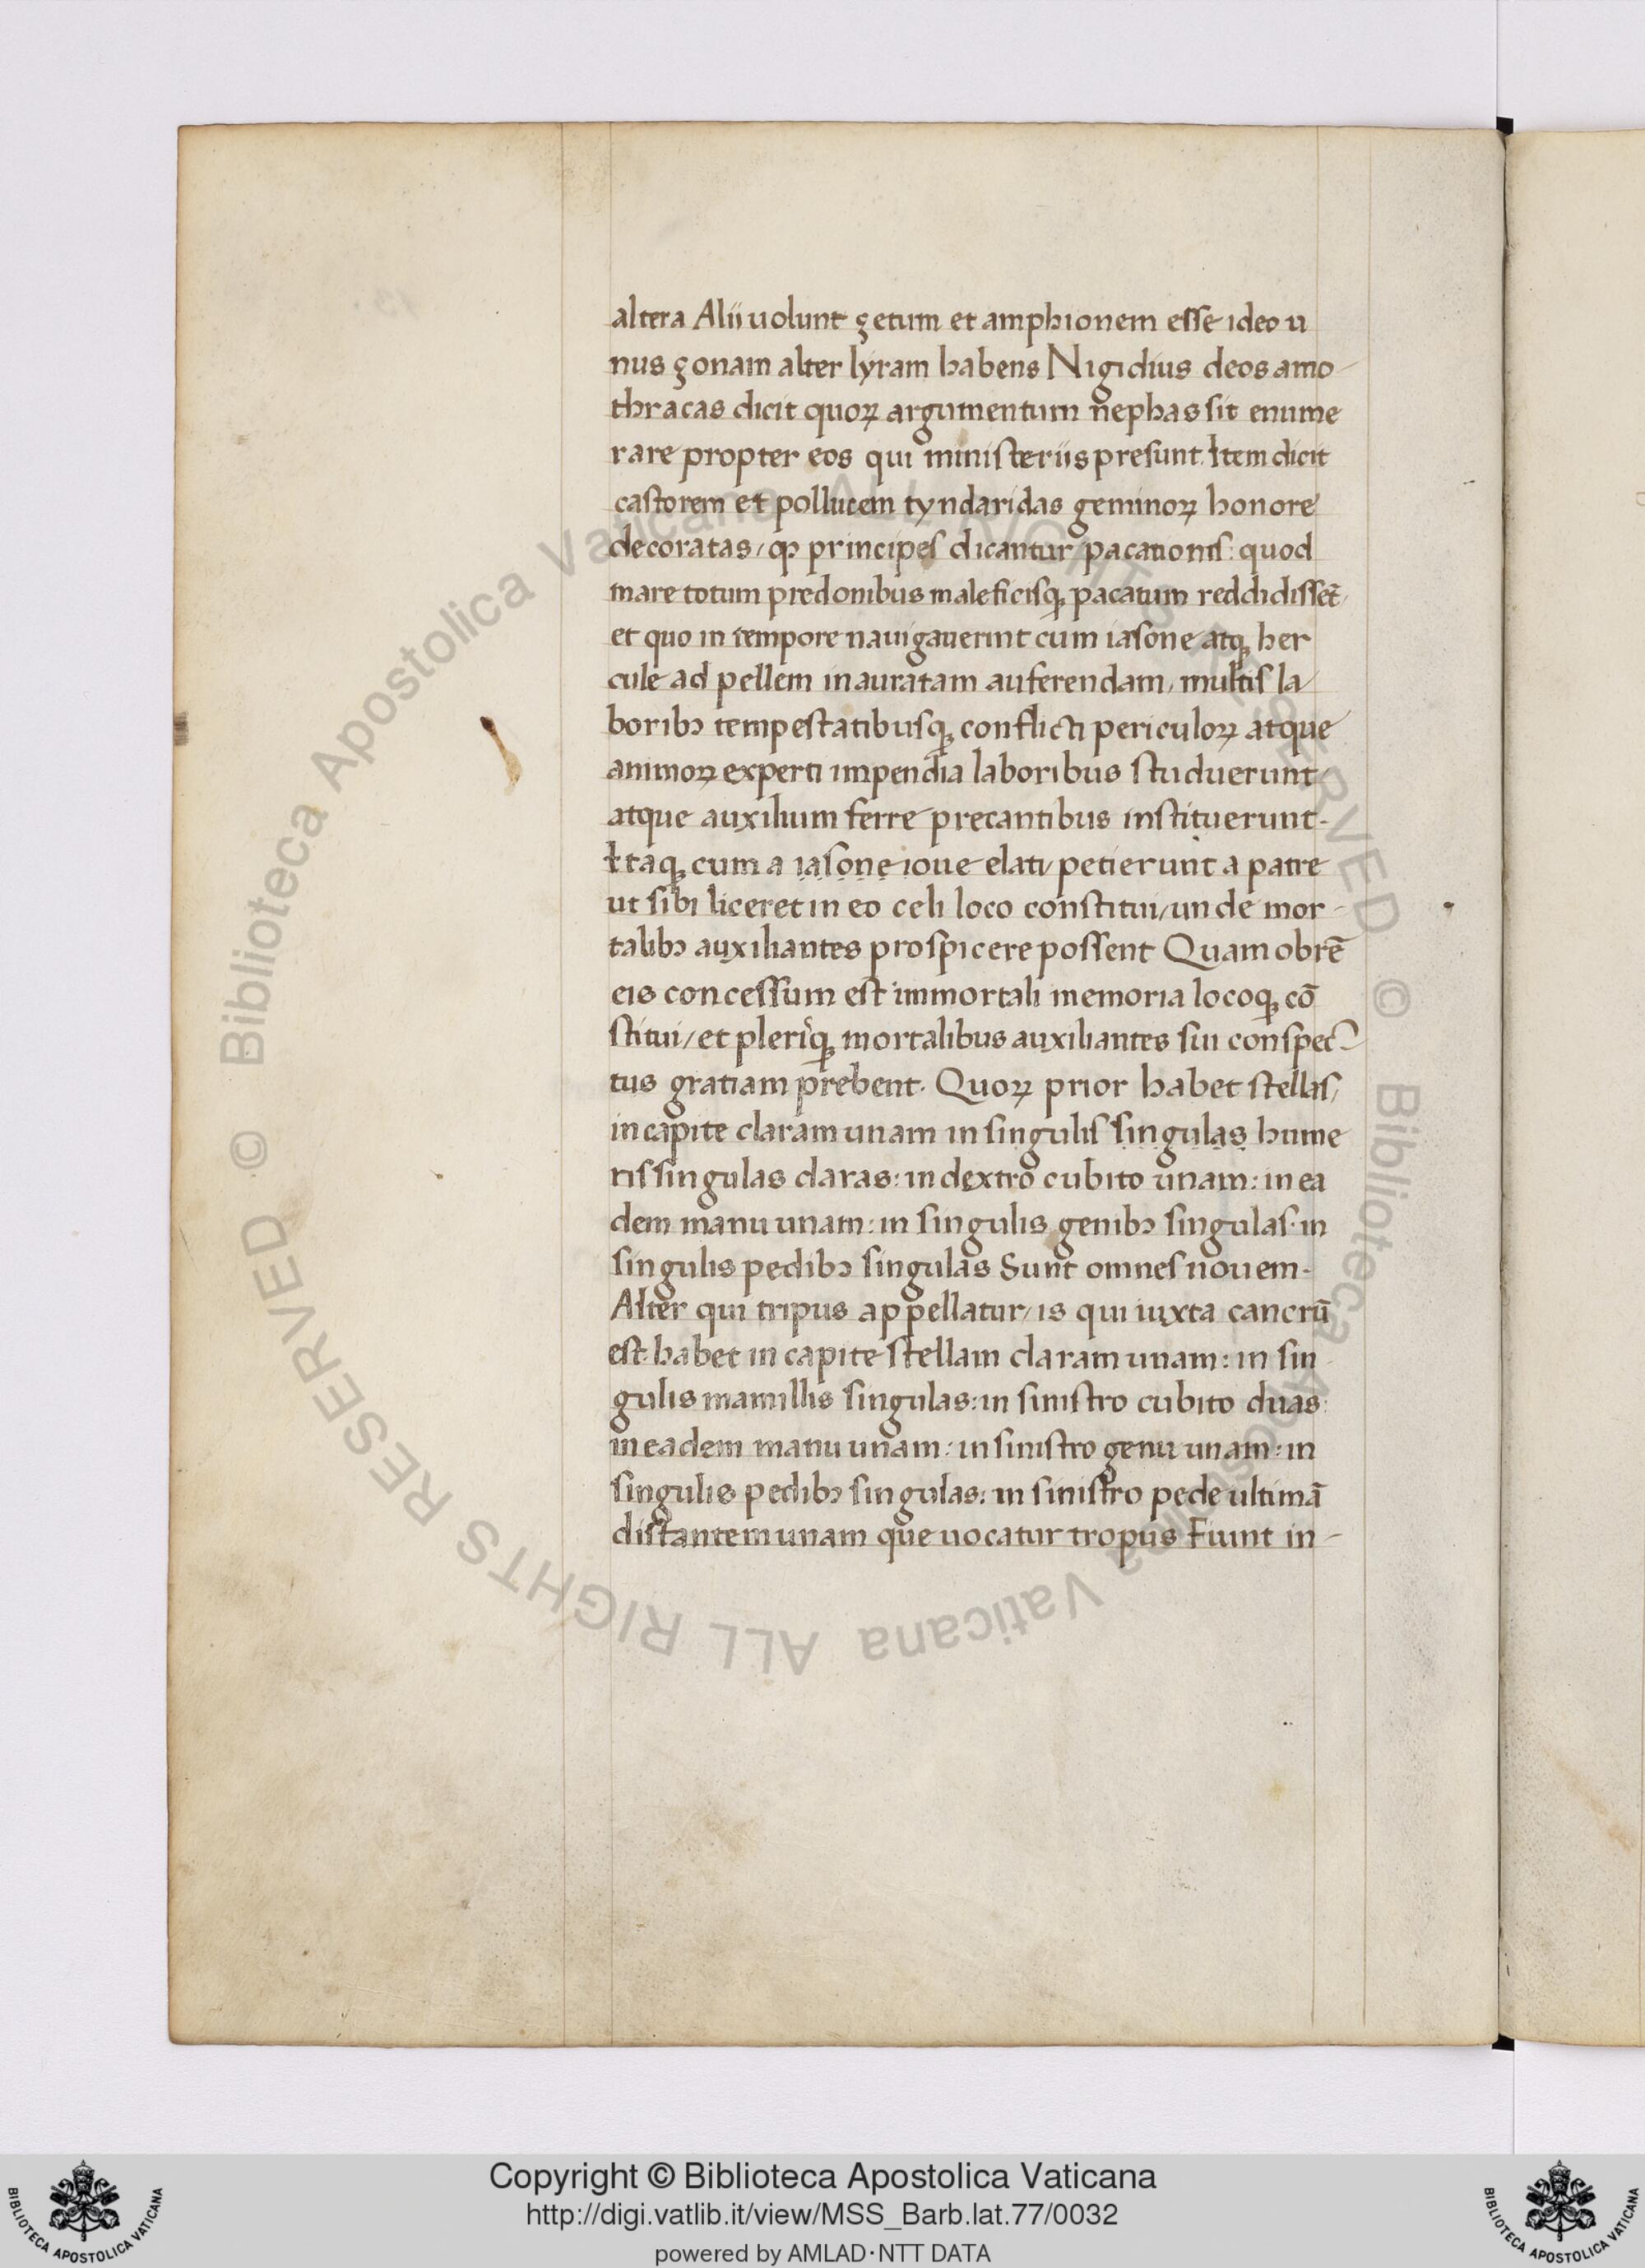 altera Alii uolunt çetum et amphionem esse ideo u
nus çonam alter lyram habens Nigidius deos amo-
thracas dicit quoꝝ argumentum nephas sit enume
rare propter eos qui ministeriis presunt. Item dicit
castorem et pollucem tyndaridas geminoꝝ honore
decoratas/ ꝙ principes dicantur pacationis: quod
mare totum predonibus maleficisqꝫ pacatum reddidisset̄/
et quo in tempore nauigauerint cum iasone atqꝫ her
cule ad pellem inauratam auferendam/ multis la/
boribꝰ tempestatibusqꝫ conflicti periculoꝝ atque
animoꝝ experti impendia laboribus studuerunt/
atque auxilium ferre precantibus instituerunt.
Itaqꝫ cum a iasone ioue elati/ petierunt a patre
ut sibi liceret in eo celi loco constitui/ unde mor-
talibꝰ auxiliantes prospicere possent Quamobrē
eis concessum est immortali memoria locoqꝫ cō
stitui/ et plerisqꝫ mortalibus auxiliantes sui conspec-
tus gratiam prebent. Quoꝝ prior habet stellas/
in capite claram unam in singulis singulas hume
ris singulas claras: in dextro cubito unam: in ea
dem manu unam: in singulis genibꝰ singulas. in
singulis pedibꝰ singulas Sunt omnes nouem.
Alter qui tripus appellatur/ is qui iuxta cancrū
est: habet in capite stellam claram unam: in sin-
gulis mamillis singulas: in sinistro cubito duas:
in eadem manu unam: in sinistro genu unam: in
singulis pedibꝰ singulas: in sinistro pede ultimā
distantem unam que uocatur tropus Fiunt in-
© Biblioteca Apostolica Vaticana ALL RIGHTS RESERVED © Biblioteca Apostolica Vaticana ALL RIGHTS RESERVED
Copyright © Biblioteca Apostolica Vaticana
http://digi.vatlib.it/view/MSS_Barb.lat.77/0032
powered by AMLAD·NTT DATA
BIBLIOTECA APOSTOLICA VATICANA
BIBLIOTECA APOSTOLICA VATICANA